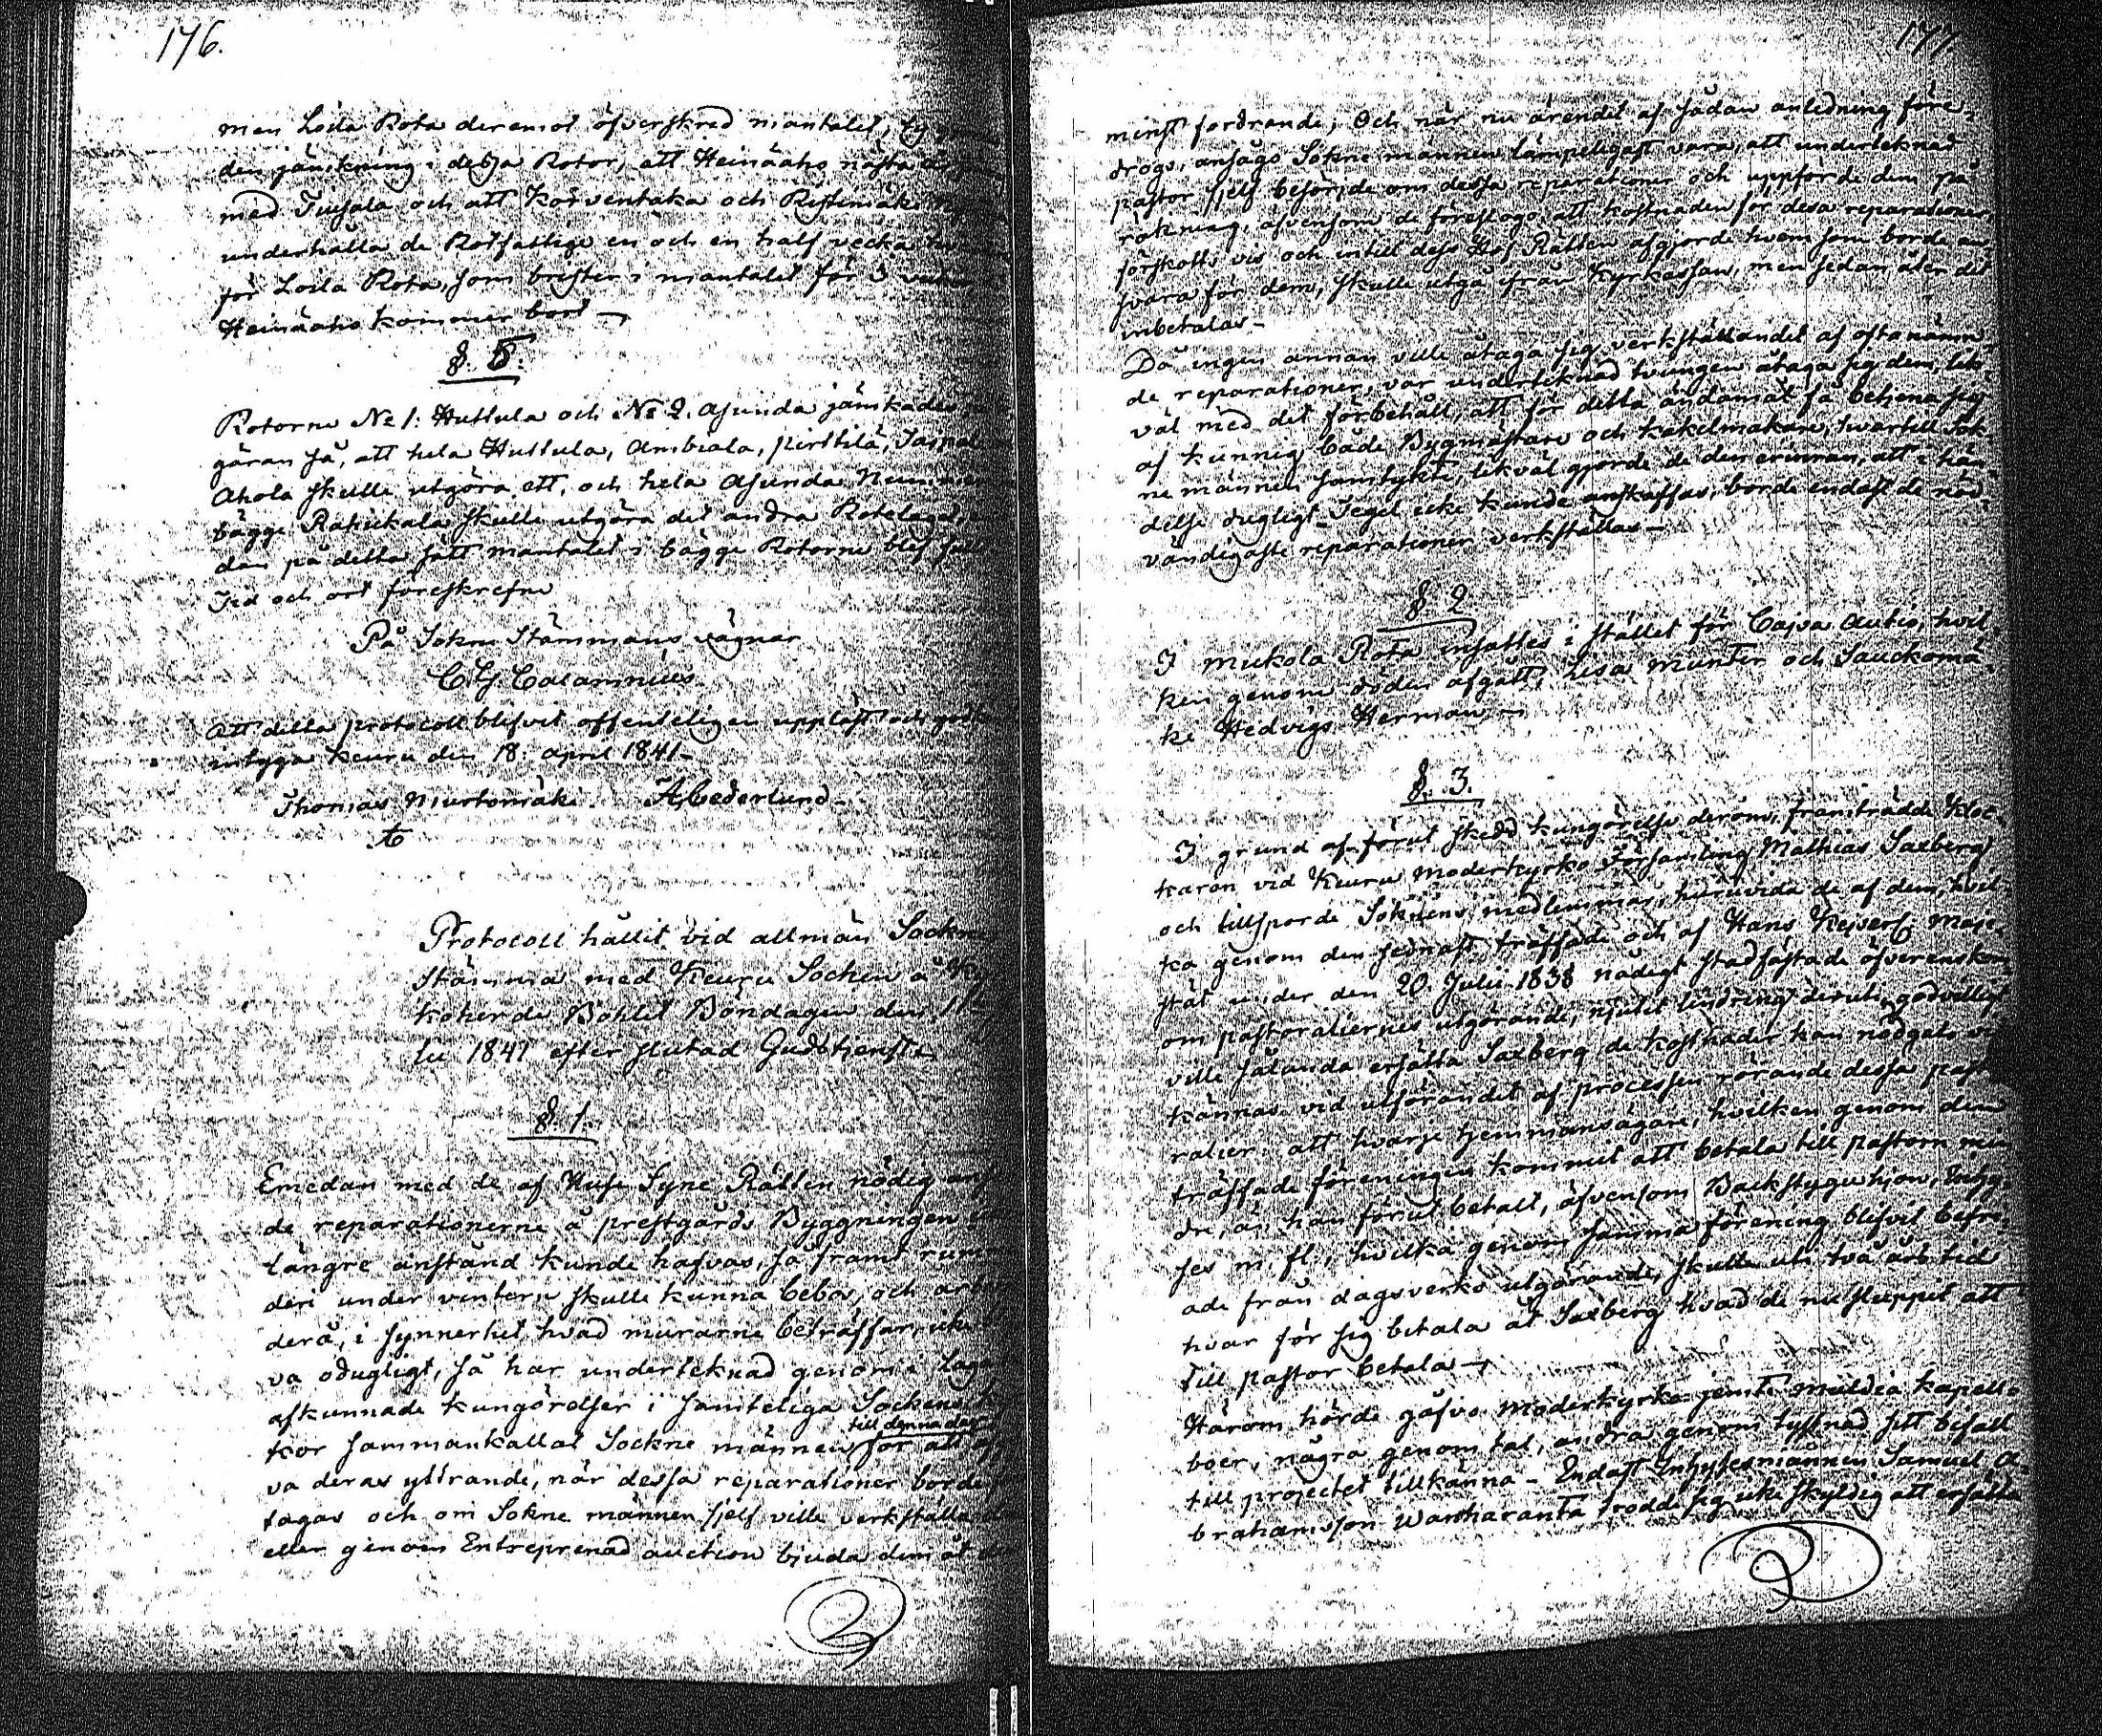 176.
men Loila Rota deremot öfverskred mantalet,
den jämkning i dessa Rotor, att Heinäaho nästa
med Tiusala och att Korventaka och Ristimäki
underhålla de Rotfattige en och en half vecka
för Loila Rota, som brister i mantalet för 3
Heinäaho kommer bort —
§. 5.
Rotorne No 1: Huttula och No 2. Asunda jämkades
gåran så, att hela Huttula, Ambiala, pirttilä,
Ahola skulle utgöra ett, och hela Asunda
bägge Rahikkala skulle utgöra det andra Rotelaget,
dan på detta sätt mantalet i bägge Rotorne blef
Tid och ort föreskrefne
På Sokne Stämmans vägnar
C. G. Calamnius
Att detta protocoll blifvit offenteligen uppläst och
intyga Keuru den 18: april 1841 —
Thomas Murtomäki A Cederlund
Protocoll hållit vid allmän Sockne
Stämma med Keuru Sochen å
koherde Bohlet Böndagen den
lii 1841 efter slutad Gudstjenst —
§. 1.
Emedan med de af Huse Syne Rätten nödig
de reparationerne å prestgårds Byggningen
längre anstånd kunde hafvas, så framt
deri under vintern skulle kunna bebos, och
derå, i synnerhet hvad murarne beträffar, icke
va odugligt, så har undertecknad genom i
afkunnade kungörelser i samteliga Sockens
kor sammankallat Sockne männen till denna dag för att
va deras yttrande, när dessa reparationer borde
tagas och om Sokne männen sjelf ville verkställa
eller genom Entreprenad auction bjuda dem åt
177
minst fordrande; Och när nu ärendet af sådan anledning före=
drogs, ansågo Sokne männen lämpeligast vara, att underteknad
pastor sjelf besörjde om dessa reparationer och uppförde dem på
räkning, äfvensom de föreslogo, att kostnaden för desa reparationer,
förskotts vis och intill dess Hof Rätten afgjorde hvem som borde an=
svara för dem, skulle utgå ifrån Kyrkassan, men sedan åter dit
inbetalas —
Då ingen annan ville åtaga sig verkställandet af oftanämn=
de reparationer, var underteknad tvungen åtaga sig dem, lik=
väl med det förbehåll, att för detta ändamål få betjena sig
af kunnig både Bygmästare och kakelmakare, hvartill Sok=
ne männen samtykte, likväl gjorde de den erinran, att i hän=
delse dugligt Tegel icke kunde anskaffas, borde endast de nöd=
vändigaste reparationer verkställas —
§. 2
I Mickola Rota insattes i stället för Cajsa Autio, hvil=
ken genom döden afgått, Lisa Munter och Sauckomä=
ki Hedvigs Herman —
§. 3.
I grund af förut skedd kungörelse derom, framträdde Kloc=
karen vid Keuru Moderkyrko Församling Mathias Saxberg
och tillsporde Soknens medlemmar, huruvida de af dem, hvil=
ka genom den sednast träffade och af Hans Kejserl. Maje=
stät under den 20. Julii 1838 nådigt stadfästade öfverenskom
om pastoraliernes utgörande, njutit lindring deruti, godvilligt
ville sålunda ersätta Saxberg de kostnader han nödgats
kännas vid utförandet af processen rörande dessa pasto
ralier: att hvarje hemmansägare, hvilken genom den
träffade föreningen kommit att betala till pastorn min
dre, än han förut betalt, äfvensom Backstuguhjon, Inhy=
ses m. fl., hvilka genom samma förening blifvit befri=
ade från dagsverks utgörande, skulle uti två års tid
hvar för sig betala åt Saxberg hvad de nu sluppit att
till pastor betala —
Härom hörde gåfvo Moderkyrko jemte Muldia kapell=
boer, några genom tal, andra genom tystnad sitt bifall
till projectet tillkänna — Endast Inhysesmannen Samuel A=
brahamsson Wanharanta trodde sig icke skyldig att ersätta